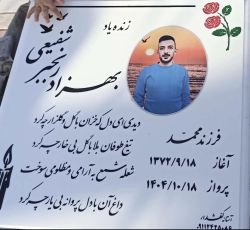 زنده یاد
بهزاد رنجبر شفیعی
فرزند محمد
آغاز ۱۳۷۲/۹/۱۸
پرواز ۱۴۰۴/۱۰/۱۸
دیدی ای دل که خزان با گل و گلزار چه کرد
تیغ طوفان بلا با گل بی خار چه کرد
شعله شمع به آرامی و مظلومی سوخت
داغ آن با دل پروانه بی یار چه کرد